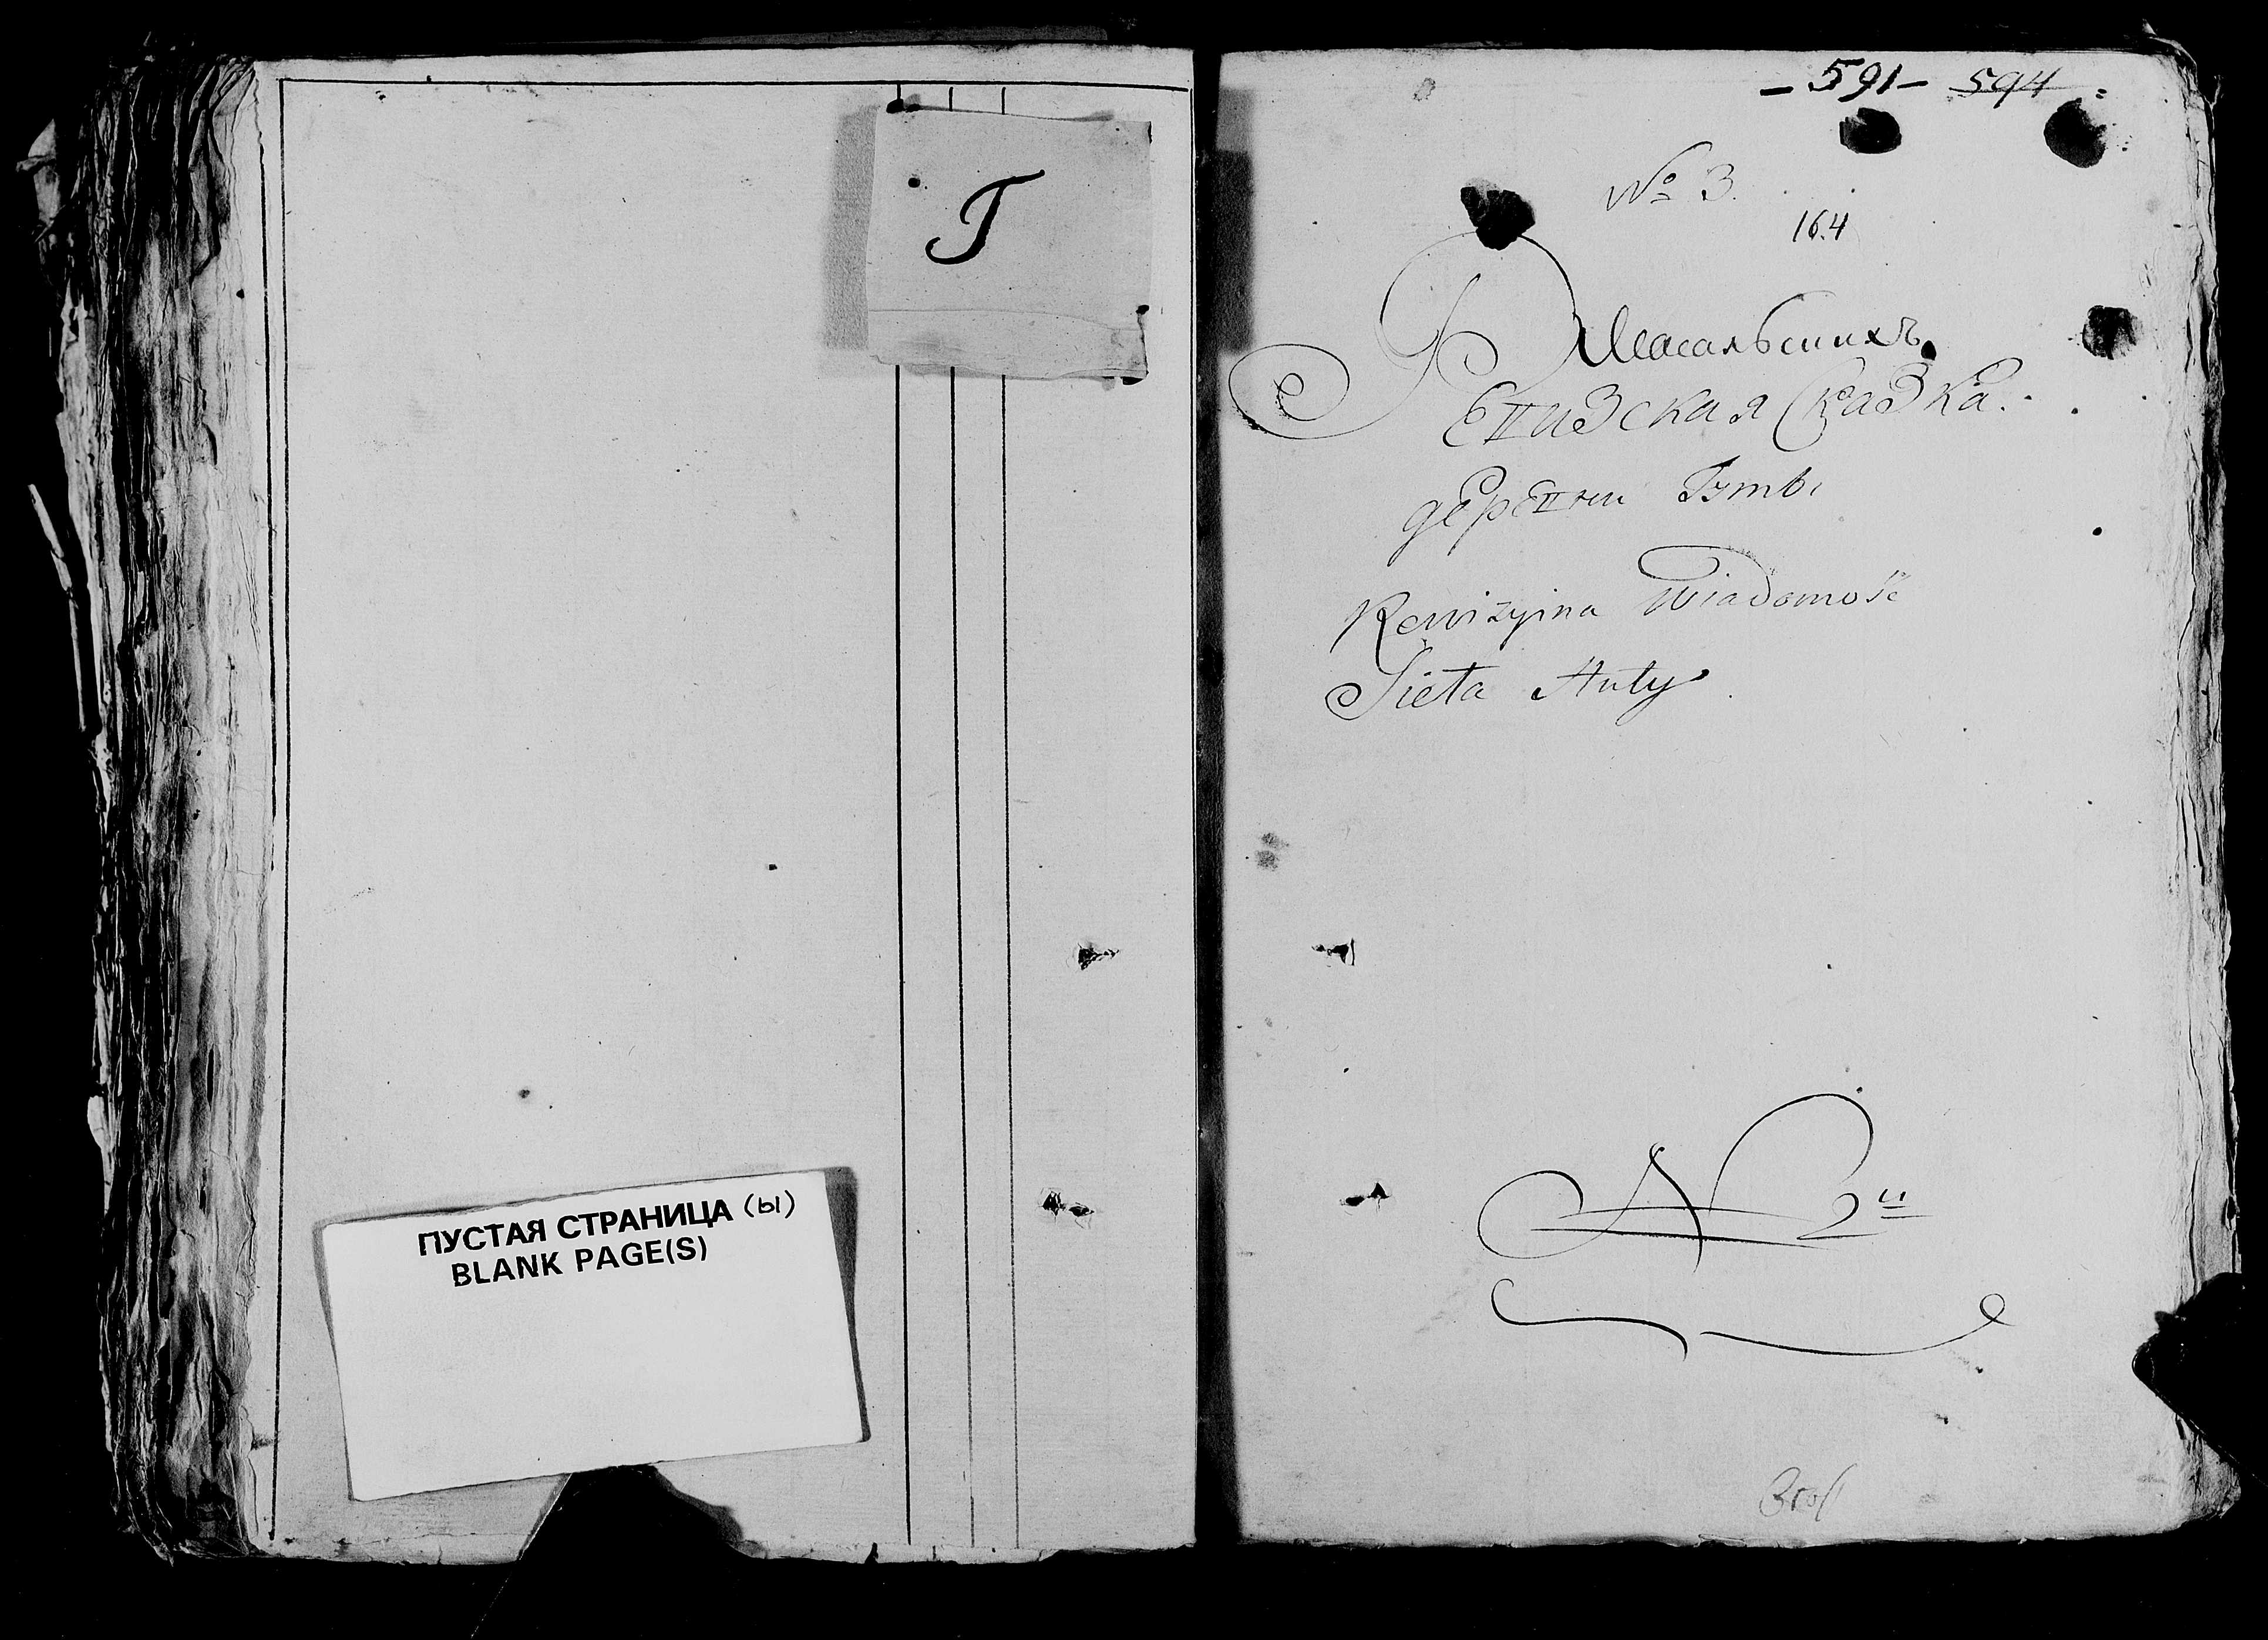 Г
ПУСТАЯ СТРАНИЦА (ы)
BLANK PAGE(S)
– 591 – 594
№ 3.
164
Масальскихъ
Ревизская Сказка.
деревни Гуты
Rewizyina Wiadomość
Sieła Huty
N 2й